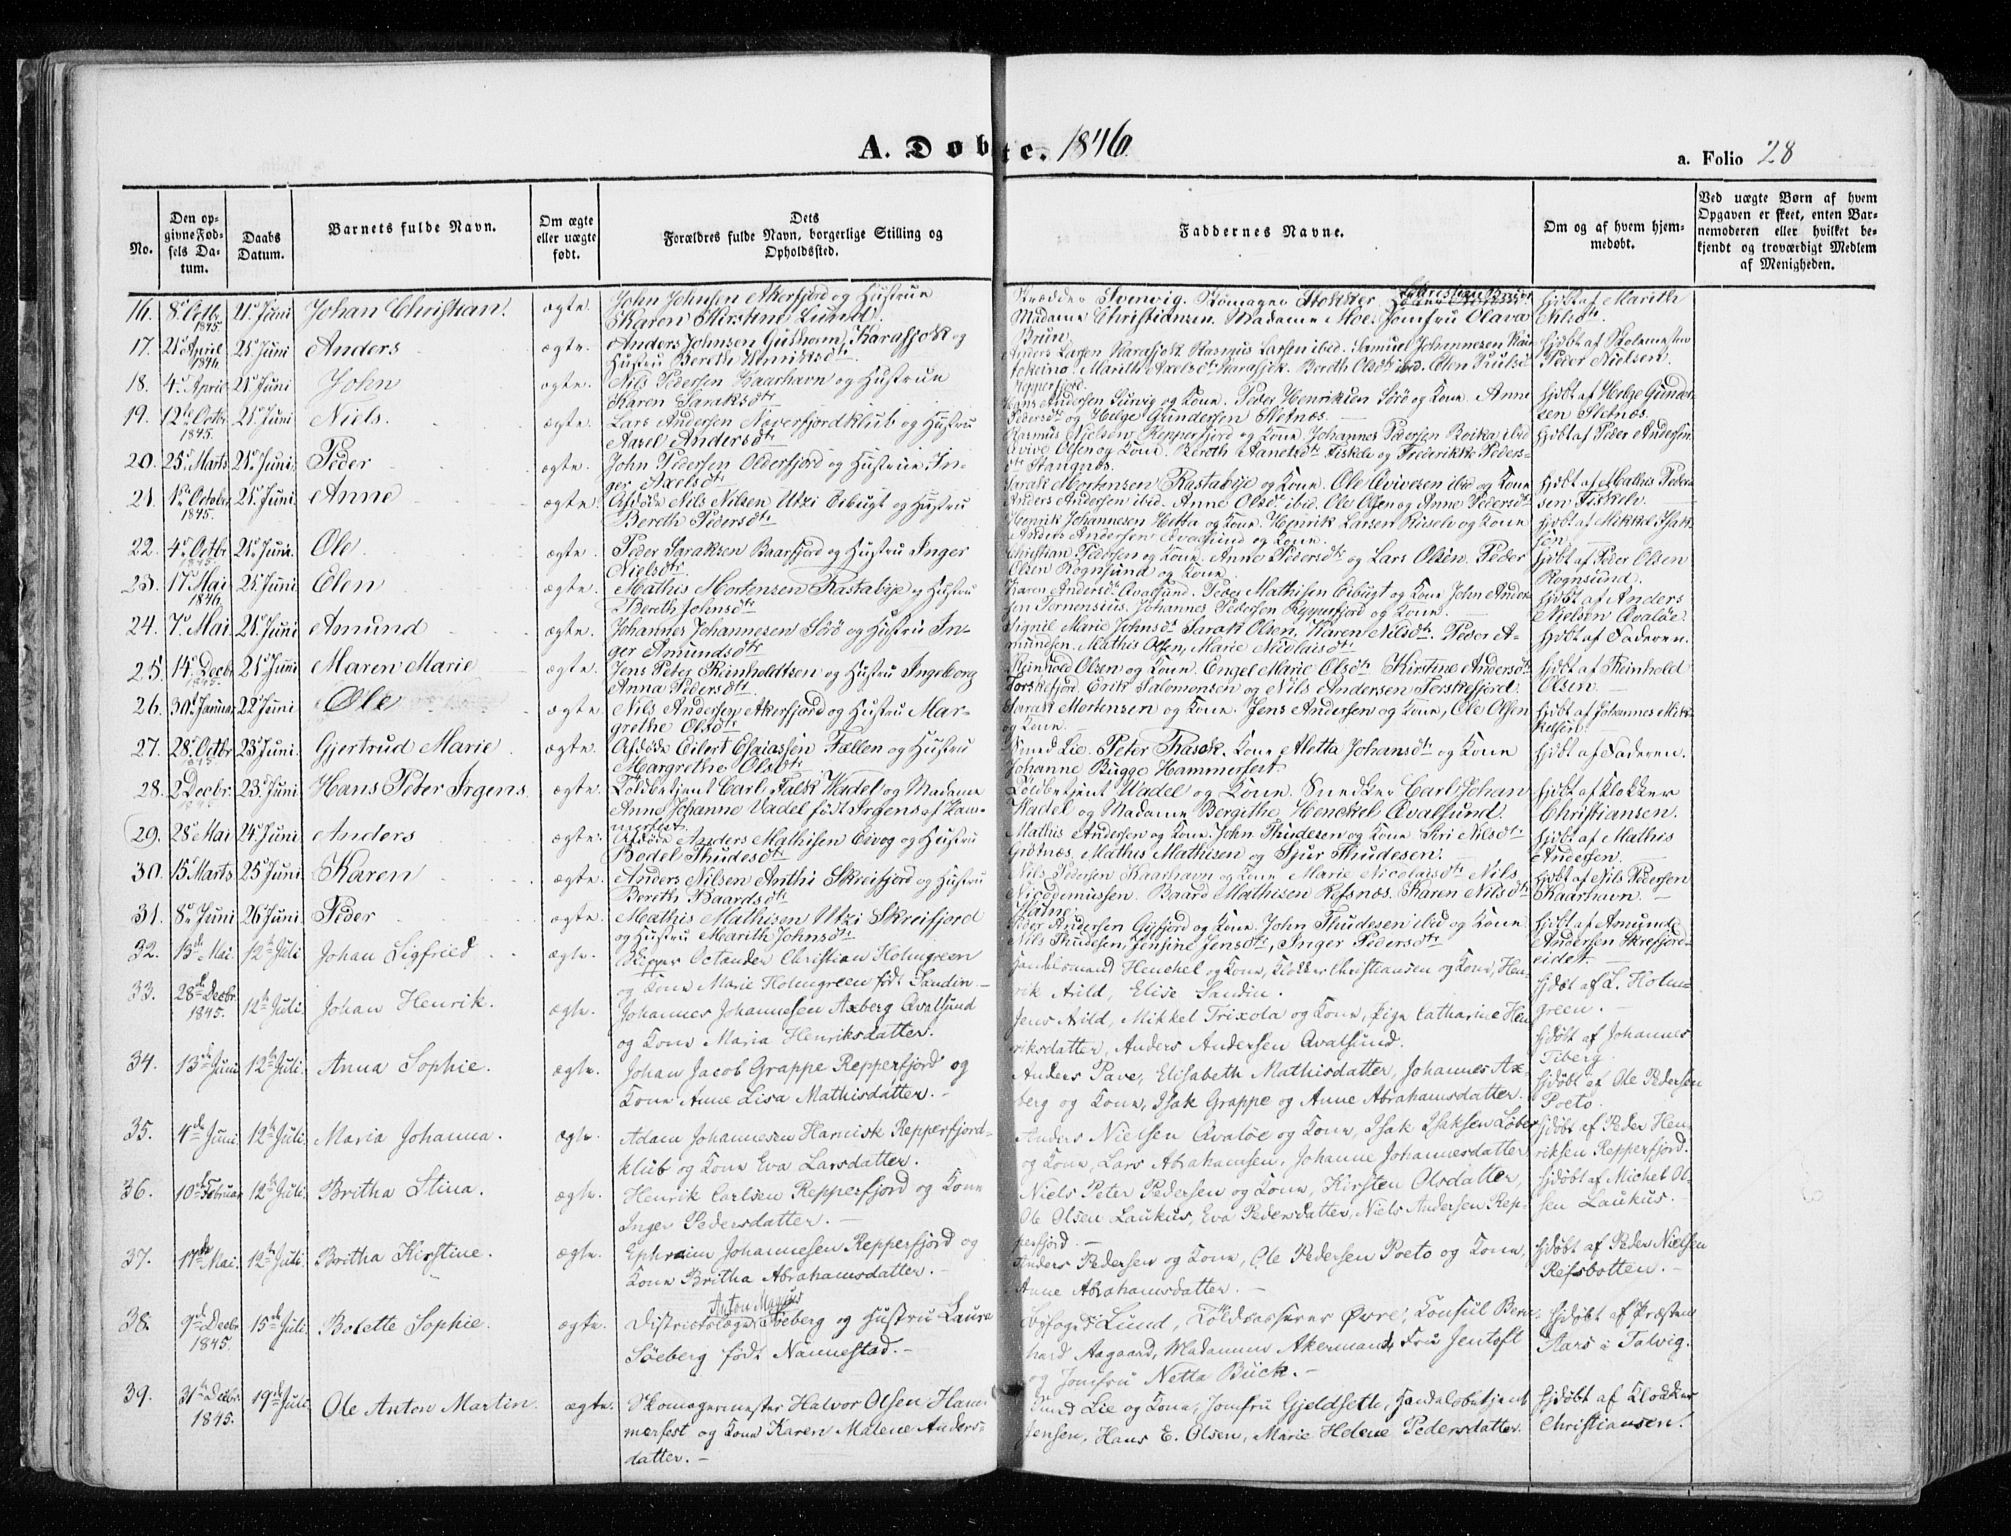 A. Døbte. 1846.
a. Folio 28
No.
Den opgivne Fødsels Datum.
Daabs Datum.
Barnets fulde Navn.
Om ægte eller uægte født.
Dets Forældres fulde Navn, borgerlige Stilling og Opholdssted.
Faddernes Navne.
Om og af hvem hjemmedøbt.
Ved uægte Børn af hvem Opgaven er skeet, enten Barnemoderen eller hvilket bekjendt og troværdigt Medlem af Menigheden.
16. 8de Octbr. 1845. 21 Juni Johan Christian. ægte. John Johnsen Akerfjord og Hustrue
Karen Kirstine Lund.
Madame Christiansen. Madame Moe. Jomfru Olava
Brun
hjdbt af Marith
Olsdtr
17. 21 April 1846. 21 Juni Anders ægte. Anders Johnsen Karasjok og
Hustru Berethe Henriksdtr
Anders Larsen Karasjok. Rasmus Larsen ibid. Samuel Johannesen Kau
tokeino. Marith Axelsdtr Karasjok. Bereth Olsdtr ibid. Elen
Repperfjord.
hjdbt af Skolemester
Peder Nielsen.
18. 4 April 21 Juni John ægte. Nils Pedersen Kaarhavn og Hustrue
Karen Saraksdtr
Hans Andersen og Kone. Peder Henriksen Sørø og Kone. Anne
Pedersdtr og Helge Gundersen Sletnæs.
hjdbt af Helge Gunder
sen Sletnæs.
19. 12te Octbr. 1845. 21 Juni Niels. ægte. Lars Andersen Næverfjordklub og Hustru
Axel Andersdtr
Rasmus Nielsen Repperfjord og Kone. Johannes Pedersen ibid
Evive Olsen og Kone. Bereth Fiskele og Frederikke Peders-
dtr Stangnæs.
hjdbt af Peder Andersen
20. 25 Marts 21 Juni. Peder ægte. John Pedersen Olderfjord og Hustrue In-
ger Axelsdtr
Sarak Mortensen Rastabye og Kone. Ole Evivesen ibid og Kone
Anders Andersen ibid. Anne Olsdtr ibid. Ole Olsen og Anne Pedersdtr
hjdbt af Mathis Peder
sen Fiskele.
21. 1 October 1845. 21 Juni. Anne ægte. Afdøde Nils Nilsen Utzi Eibugt og Hustru
Bereth Pedersdtr
Henrik Johannesen Hetta og Kone. Henrik Larsen og Kone
Anders Andersen Qvalsund og Kone.
hjdbt af Mikkel Isak
sen
22. 4 Octbr 1845. 21 Juni. Ole. ægte. Peder Saraksen Baarfjord og Hustru Inger
Nielsdtr
Christian Pedersen og Kone. Anne Pedersdtr og Lars Olsen. Peder
Olsen Rognsund og Kone.
hjdbt af Peder Olsen
Rognsund.
23. 17 Mai 1846. 21 Juni Elen ægte. Mathis Mortensen Rastabye og Hustru
Bereth Johnsdtr
Karen Andersdtr Qvalsund. Peder Mathisen Eibugt og Kone John Ander
sen Johannes Pedersen Repperfjord og Kone.
hjdbt af Anders
Nielsen Qvaløe.
24. 7 Mai. 21 Juni Amund ægte. Johannes Johannesen Sørø og Hustru In-
ger Amundsdtr
Signil Marie Johnsdtr Sarak Olsen. Karen Nilsdtr. Peder A-
mundsen. Mathis Olsen, Marie Nicolaisdtr
hjdbt af Faderen.
25. 14 Decbr 1845. 21 Juni Maren Marie ægte. Jens Peter Reinholdtsen og Hustru Ingeborg
Anna Pedersdtr
Reinhold Olsen og Kone. Engel Marie Olsdtr Kirstine Andersdtr
Torskefjord, Erik Salomonsen og Nils Andersen Torskefjord.
hjdbt af Reinhold
Olsen.
26. 30 Januar 22 Juni Ole ægte. Nils Andersen Akerfjord og Hustru Mar-
grethe Olsdtr
Sarak Mortensen og Kone. Jens Andersen og Kone, Ole Olsen
og Kone.
hjdbt af Johannes Mik-
kelsen.
27. 28 Octbr 1845. 23 Juni. Gjertrud Marie ægte. Afdøde Eilert Esaiassen Fællen og Hustru
Margrethe Olsdtr
Smed Lie. Peter Trasak. Kone Metta Johansdtr og Kone
Johanne Bugge Hammerfest
hjdbt af Faderen.
28. 2 Decbr. 1845. 23 Juni Hans Peter Irgens. ægte. Toldbetjent Carl Falsk Wadel og Madame
Anne Johanne Wadel født Irgens af Ham-
merfest
Toldbetjent Wadel og Kone. Snedker Carl Johan
Wadel og Madame Bergithe Henckel Qvalsund.
hjdbt af Klokker
Christiansen.
29. 28 Mai 24 Juni Anders ægte. Afdøde Anders Mathisen Eivog og Hustru
Bodel Thudesdtr
Mathis Andersen og Kone. John Thudesen og Kone Siri Nilsdtr
Grøtnæs. Mathis Mathisen og Sjur Thudesen.
hjdbt af Mathis
Andersen.
30. 15 Marts 25 Juni. Karen ægte. Anders Nilsen Anthi Skreifjord og Hustru
Bereth Baardsdtr
Nils Pedersen Kaarhavn og Kone Marie Nicolaisdtr Nils
Nicodemussen. Baard Mathisen Refsnæs. Karen Nilsdtr
hjdbt af Nils Pedersen
Kaarhavn.
31. 8 Juni 26 Juni. Peder ægte. Mathis Mathisen Utzi Skreifjord
og Hustru Marith Johnsdtr
Peder Andersen Gyfjord og Kone. John Thudesen ibid og Kone
Nils Thudesen, Jensine Jensdtr, Inger Pedersdtr
hjdbt af Amund
Andersen Skrefjord-
eidet.
32. 13de Mai. 12te Juli Johan Sigfried ægte. Skipper Octander Christian Holmgreen
og Kone Marie Holmgreen født Sandin.
Handelsmand Henchel og Kone, Klokker Christiansen og Kone, Hen-
rik Arild, Elise Sandin.
hjdøt af L. Holm-
green.
33. 28de Decbr. 1845. 12te Juli. Johan Henrik. ægte. Johannes Johannesen Axberg Qvalsund
og Kone Maria Henriksdatter.
Jens Arild, Mikkel Trixola og Kone, Pige Catharine Hen
riksdatter, Anders Andersen Qvalsund.
hjdøbt af Johannes
Tiberg.
34. 13de Juni 12te Juli. Anna Sophie. ægte. Johan Jacob Grappe Repperfjord og
Kone Anne Lisa Mathisdatter. -
Anders Pave, Elisabeth Mathisdatter, Johannes Ax-
berg og Kone, Isak Grappe og Anne Abrahamsdatter.
hjdøbt af Ole Pedersen
Poeto.
35. 4de Juni. 12te Juli. Maria Johanna. ægte. Adam Johannesen Harnisk Repperfjord-
klub og Kone Eva Larsdatter.
Anders Nielsen Qvaløe og Kone, Isak Isaksen Løber
og Kone, Lars Abrahamsen, Johanne Johannesdatter
hjdøbt af Peder Hen
riksen Repperfjord.
36. 10de Februar 12te Juli. Britha Stina. ægte. Henrik Carlsen Repperfjord og Kone
Inger Pedersdatter. -
Niels Peter Pedersen og Kone, Kirsten Olsdatter,
Ole Olsen Laukus, Eva Pedersdatter, Niels Andersen Rep-
perfjord. -
hjdøbt af Michel Ol-
sen Laukus.
37. 17de Mai. 12te Juli. Britha Kirstine. ægte. Ephraim Johannesen Repperfjord og
Kone Britha Abrahamsdatter. -
Anders Pedersen og Kone, Ole Pedersen Poeto og Kone,
Anne Abrahamsdatter. -
hjdøbt af Peder Nielsen
Refsbotten. -
38. 7de Decbr 1845. 15de Juli. Bolette Sophie. ægte. Districtslæge Anton Magnus Søeberg og Hustru Laura
Søeberg født Nannestad. -
Byfoged Lund, Toldkasserer Øvre, Konsul Bern-
hard Aagaard, Madamme Akermand, Fru Jentoft
og Jomfru Netta Buck. -
hjdøbt af Præsten
Aars i Talvig.
39. 31te Decbr. 1845. 19de Juli. Ole Anton Martin. ægte. Skomagermester Halvor Olsen Ham-
merfest og Kone Karen Malene Anders-
datter. -
Smed Lie og Kone, Jomfru Gjeldseth, Handelsbetjent
Jensen, Hans E. Olsen, Marie Helene Pedersdatter.
hjdøbt af Klokker
Christiansen.